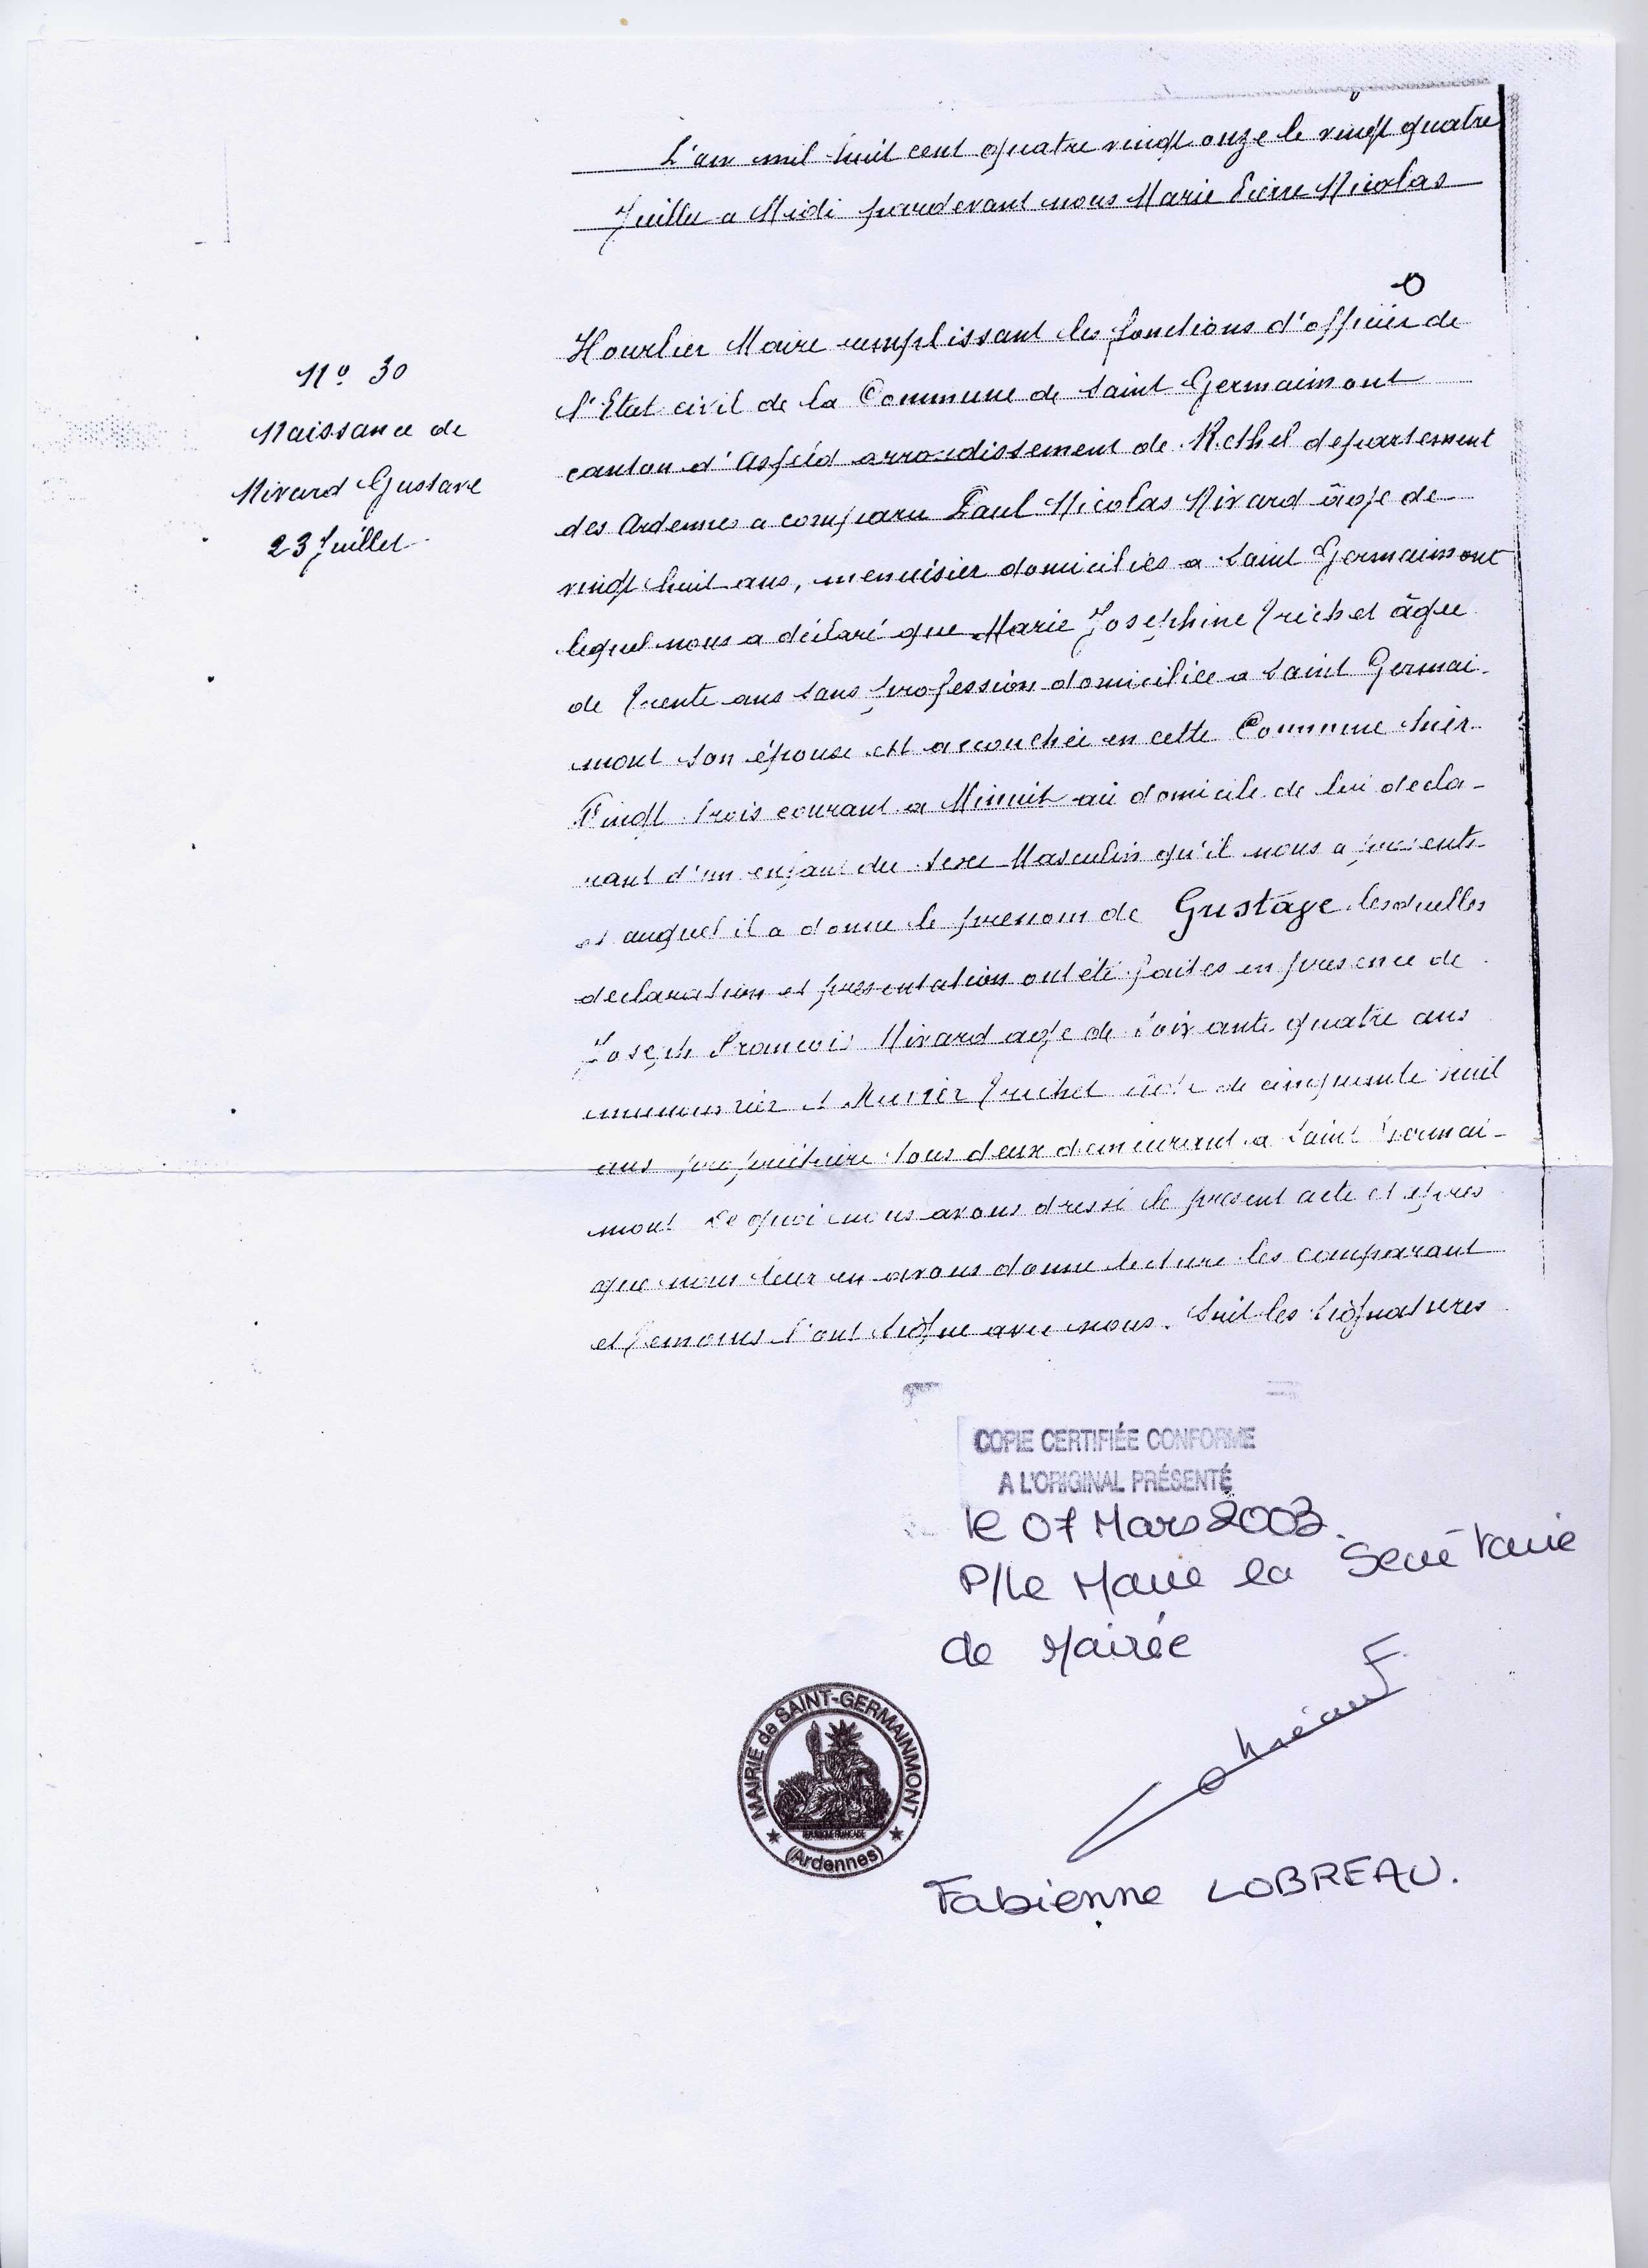 L'an mil huit cent quatre vingt onze le vingt quatre
Juillet a Midi pardevant nous Marie Pierre Nicolas
Hourlier Maire remplissant les fonctions d'officier de
l'Etat civil de la Commune de Saint Germainmont
canton d'Asfeld arrondissement de Rethel departement
des Ardennes a comparu Paul Nicolas Nivard âge de
vingt huit ans, menuisier domiciliés a Saint Germainmont
lequel nous a déclaré que Marie Josephine Trichet âgee
de trente ans sans profession domiciliée a Saint Germai-
mont son épouse est accouchée en cette Commune hier
Vingt trois courant a Minuit au domicile de lui decla-
rant d'un enfant du sexe Masculin qu'il nous a presente
et auquel il a donne le prenom de Gustave lesquelles
declaration et presentation ont été faites en presence de
Joseph Francois Nivard age de soixante quatre ans
et Trichet de cinquante huit
ans propriétaire tous deux demeurant a Saint Germai-
mont De quoi nous avons dressé le present acte et après
que nous leur en avons donne lecture les comparant
et temoins l'ont signe avec nous. Suit les signatures
N° 30
Naissance de
Nivard Gustave
23 Juillet
COPIE CERTIFIÉE CONFORME
A L'ORIGINAL PRÉSENTÉ
le 07 Mars 2003.
P/Le Maire la Secrétaire
de Mairie
MAIRIE de SAINT-GERMAINMONT
RÉPUBLIQUE FRANÇAISE
(Ardennes)
Fabienne LOBREAU.